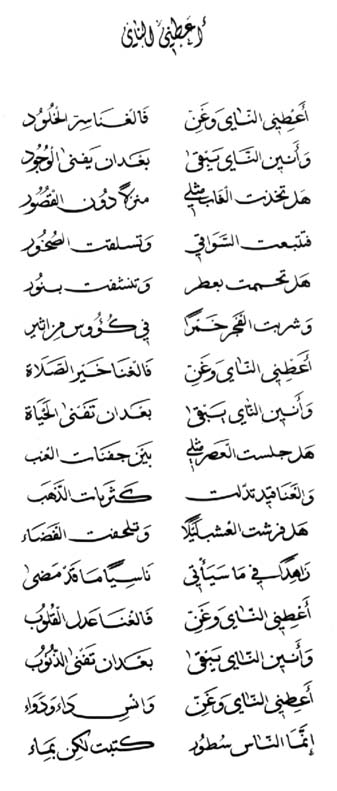 أعطني الناي
أَعْطِنِي النَّايَ وَغَنِّ فَالغِنَا سِرُّ الخُلُودْ
وَأَنِينُ النَّايِ يَبْقَى بَعْدَ أَن يَفْنَى الوُجُودْ
هَل تَخِذتَ الغَابَ مِثْلِي مَنزِلاً دُونَ القُصُورْ
فَتَتَبَّعتَ السَّوَاقِي وَتَسَلَّقتَ الصُّخُورْ
هَل تَحَمَّمتَ بِعِطرٍ وَتَنَشَّفتَ بِنُورْ
وَشَرِبتَ الفَجْرَ خَمْرًا فِي كُؤُوسٍ مِن أَثِيرْ
أَعْطِنِي النَّايَ وَغَنِّ فَالغِنَا خَيْرُ الصَّلَاة
وَأَنِينُ النَّايِ يَبْقَى بَعْدَ أَن تَفْنَى الحَيَاة
هَل جَلَستَ العَصْرَ مِثْلِي بَيْنَ جَفنَاتِ العِنَبْ
وَالعَنَاقِيدُ تَدَلَّت كَثُرَيَّاتِ الذَّهَبْ
هَل فَرَشتَ العُشبَ لَيْلاً وَتَلَحَّفتَ الفَضَاء
زَاهِدًا فِي مَا سَيَأْتِي نَاسِيًا مَا قَدْ مَضَى
أَعْطِنِي النَّايَ وَغَنِّ فَالغِنَا عَدلُ القُلُوبْ
وَأَنِينُ النَّايِ يَبْقَى بَعْدَ أَن تَفْنَى الذُّنُوبْ
أَعْطِنِي النَّايَ وَغَنِّ وَانْسَ دَاءً وَدَوَاء
إِنَّمَا النَّاسُ سُطُورٌ كُتِبَت لٰكِن بِمَاء